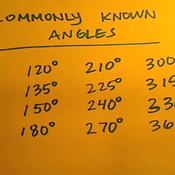 COMMONLY KNOWN
ANGLES
120° 210° 300
135° 225° 315
150° 240° 330
180° 270° 36